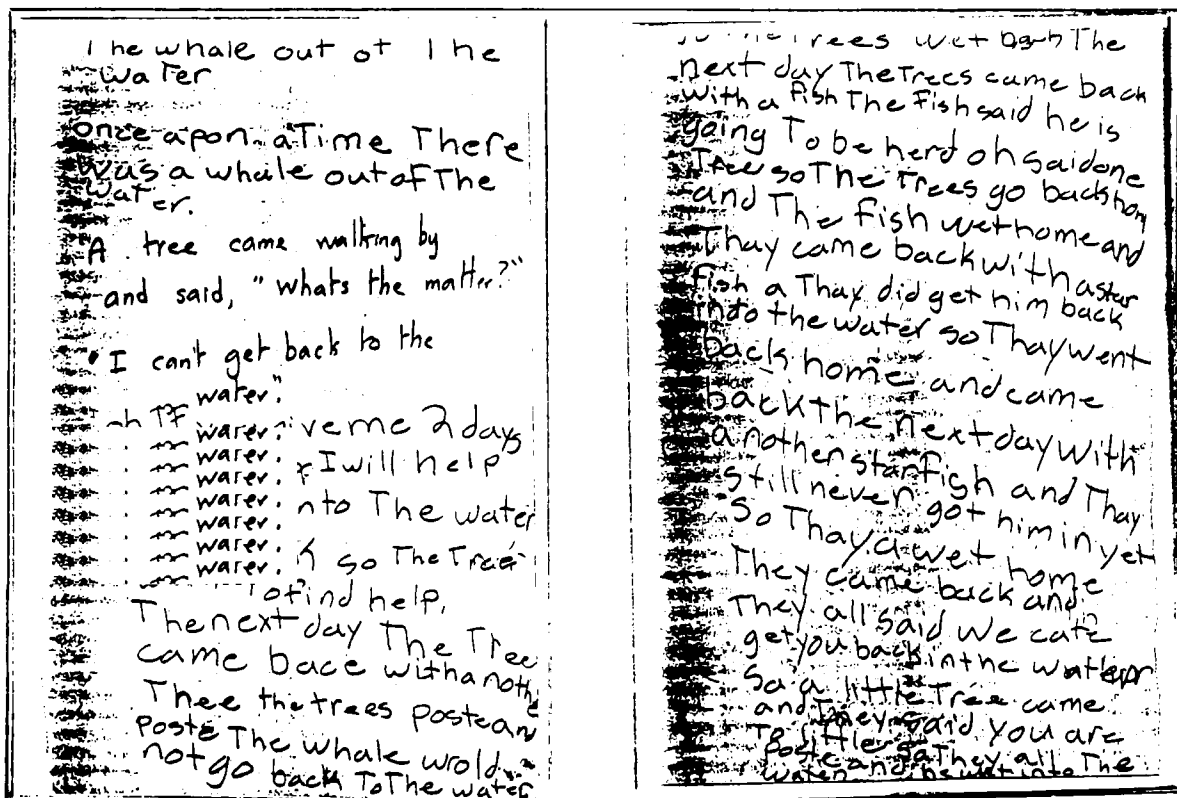 The whale out of The
water
once apon a Time There
was a whale out of The
water.
A tree came walking by
and said, "whats the matter?"
"I can't get back to the
water."
water. ive me 2 days
water. I will help
water.
water. nto The water
water.
water. so The Tree
water.
To find help.
The next day The Tree
came bace with a noth
Thee the trees poste an
poste The whale wrold
not go back To The water
so The Trees wet bach The
next day The Trees came back
with a fish The Fish said he is
going To be herd oh said one
Tree so The Trees go back hom
and The fish wet home and
Thay came back with a star
fish a Thay did get him back
into the water so Thay went
back home and came
back the next day with
a nother starfish and Thay
still never got him in yet
So Thay a wet home
They came back and
They all said we cate
get you back in the water
So a little Tree came
and They said you are
To little so They all The
poste and
water he wet into